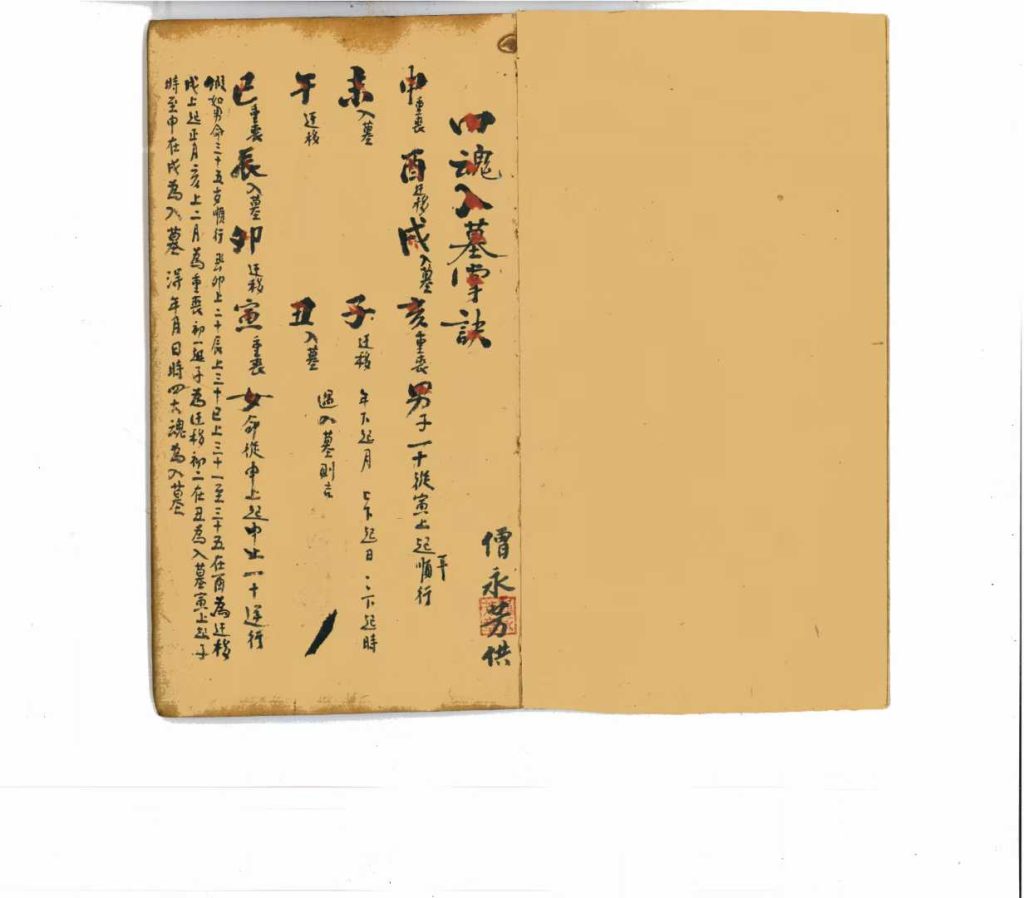 四魂入墓掌訣
僧永芳供
申重喪 酉迁移 戌入墓 亥重喪 男子一十從寅上起順行
未入墓 子迁移 年下起月 月下起日 日下起時
午迁移 丑入墓 遇入墓則吉
巳重喪 辰入墓 卯迁移 寅重喪 女命從申上起申上一十逆行
假如男命三十五岁順行 卯上二十辰上三十巳上三十一至三十五在酉為迁移
戌上起正月亥上二月為重喪初一起子為迁移初二在丑為入墓寅上起子
時至申在戌為入墓 得年月日時四大魂為入墓